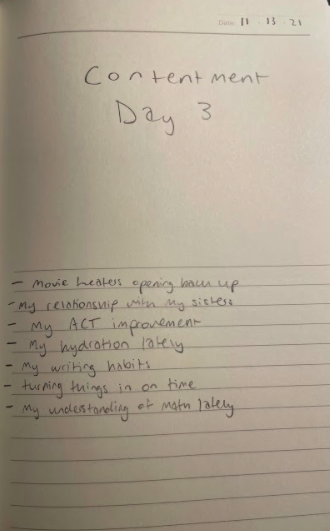 Date: 11 · 13 · 21
Contentment
Day 3
- Movie theaters opening back up
- my relationship with my sisters
- My ACT improvement
- My hydration lately
- My writing habits
- turning things in on time
- My understanding of math lately